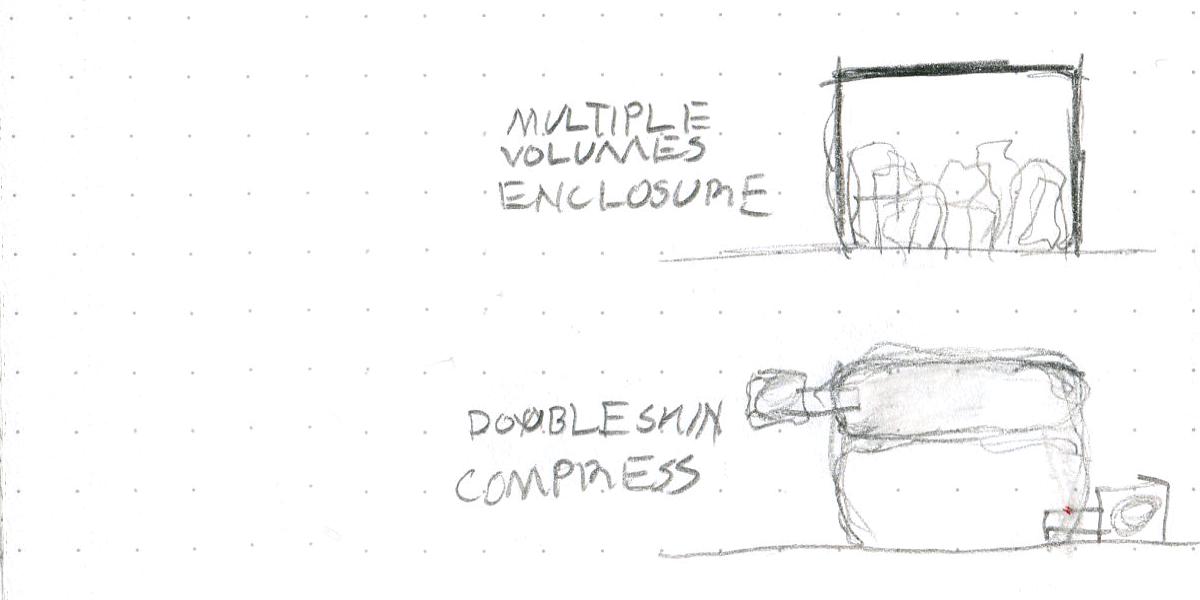 MULTIPLE
VOLUMES
ENCLOSURE
DOUBLESKIN
COMPRESS